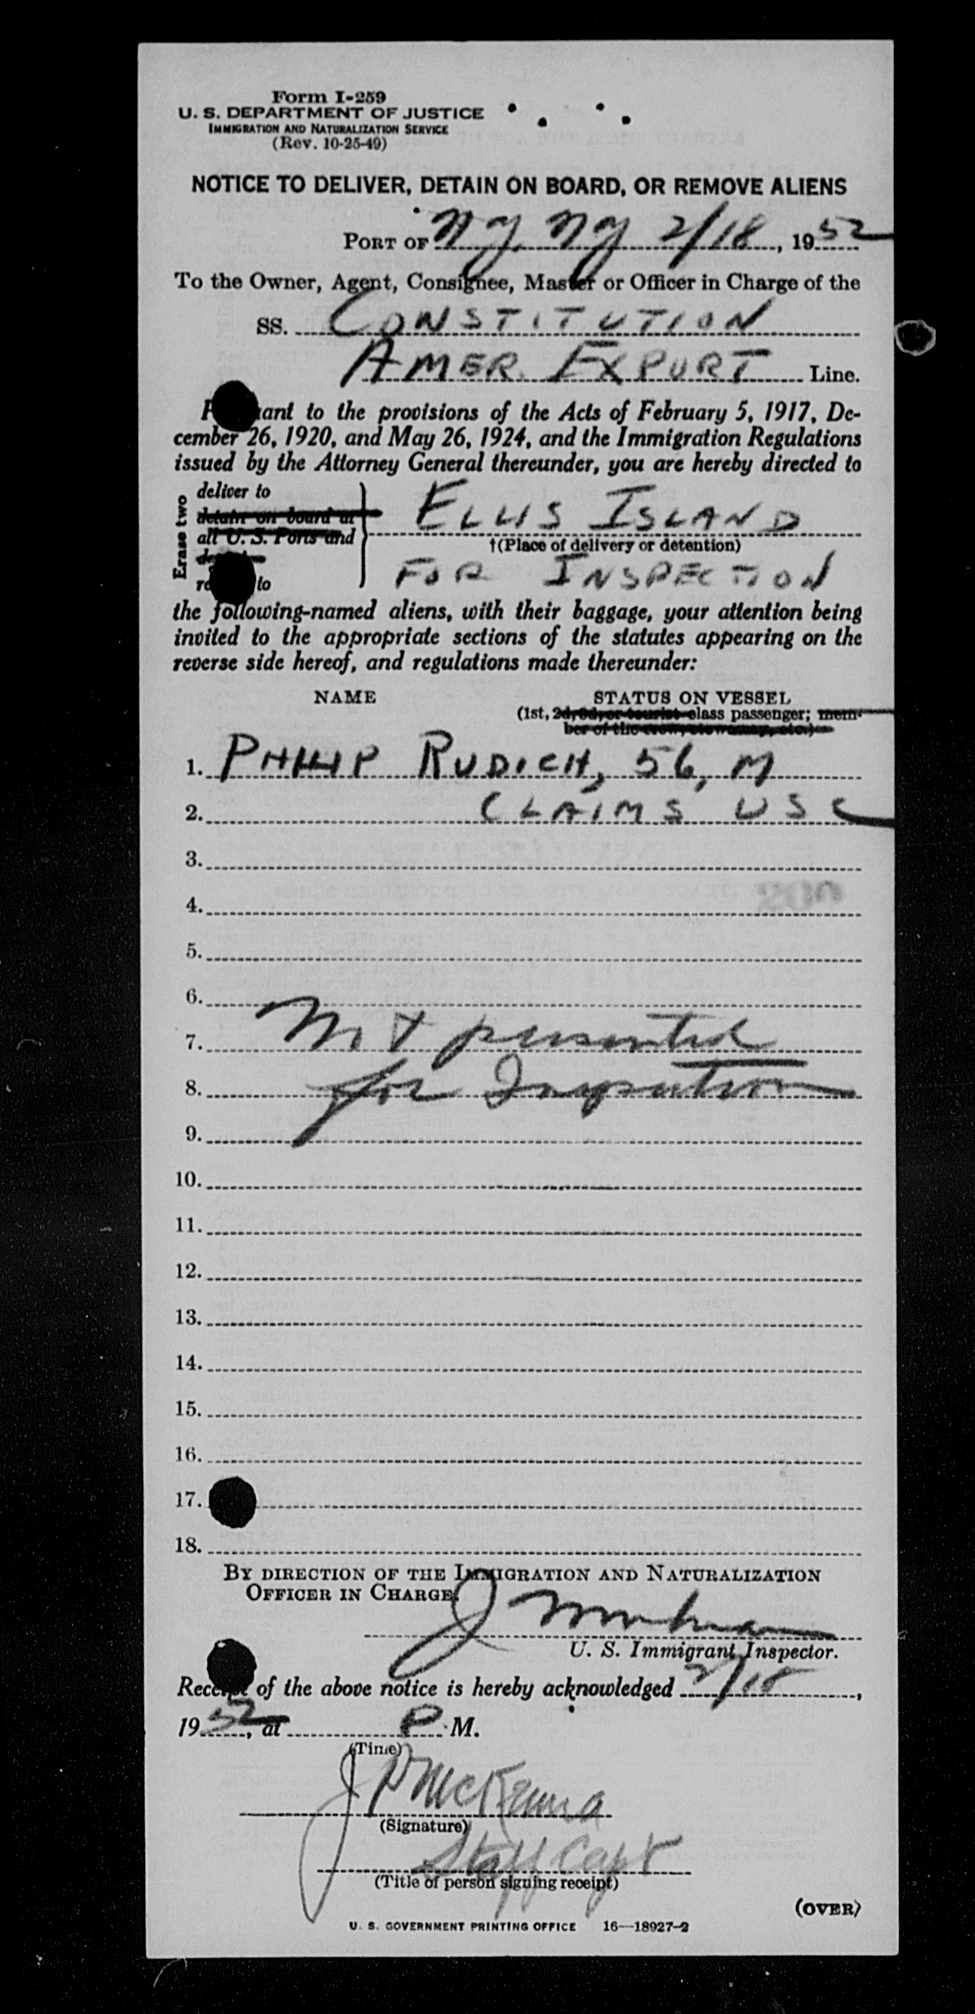 Form I-259
U. S. DEPARTMENT OF JUSTICE
IMMIGRATION AND NATURALIZATION SERVICE
(Rev. 10-25-49)
NOTICE TO DELIVER, DETAIN ON BOARD, OR REMOVE ALIENS
PORT OF N.Y. N.Y. 2/18, 1952
To the Owner, Agent, Consignee, Master or Officer in Charge of the
SS. CONSTITUTION
AMER. EXPORT Line.
to the provisions of the Acts of February 5, 1917, De-
cember 26, 1920, and May 26, 1924, and the Immigration Regulations
issued by the Attorney General thereunder, you are hereby directed to
Erase two
deliver to
detain on board at
all U. S. Ports and
to
ELLIS ISLAND
†(Place of delivery or detention)
FOR INSPECTION
the following-named aliens, with their baggage, your attention being
invited to the appropriate sections of the statutes appearing on the
reverse side hereof, and regulations made thereunder:
NAME STATUS ON VESSEL
(1st, 2d, 3d, or tourist class passenger; mem-
ber of the crew, stowaway, etc.)
1. PHILIP RUDICH, 56, M
2. CLAIMS USC
3.
4.
5.
6.
7. Not presented
8. for Inspection
9.
10.
11.
12.
13.
14.
15.
16.
17.
18.
BY DIRECTION OF THE IMMIGRATION AND NATURALIZATION
OFFICER IN CHARGE.
U. S. Immigrant Inspector.
Receipt of the above notice is hereby acknowledged 2/18,
1952, at P. M.
(Time)
J P McKenna
(Signature)
Staff Capt
(Title of person signing receipt)
(OVER)
U. S. GOVERNMENT PRINTING OFFICE 16—18927-2